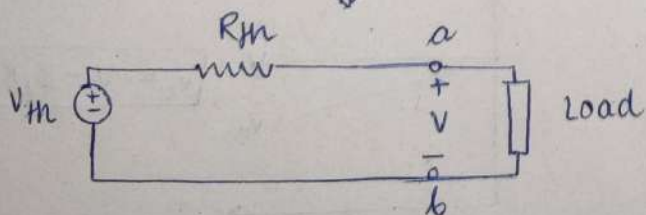 Rth
a
+
Vth
+
-
V
Load
-
b